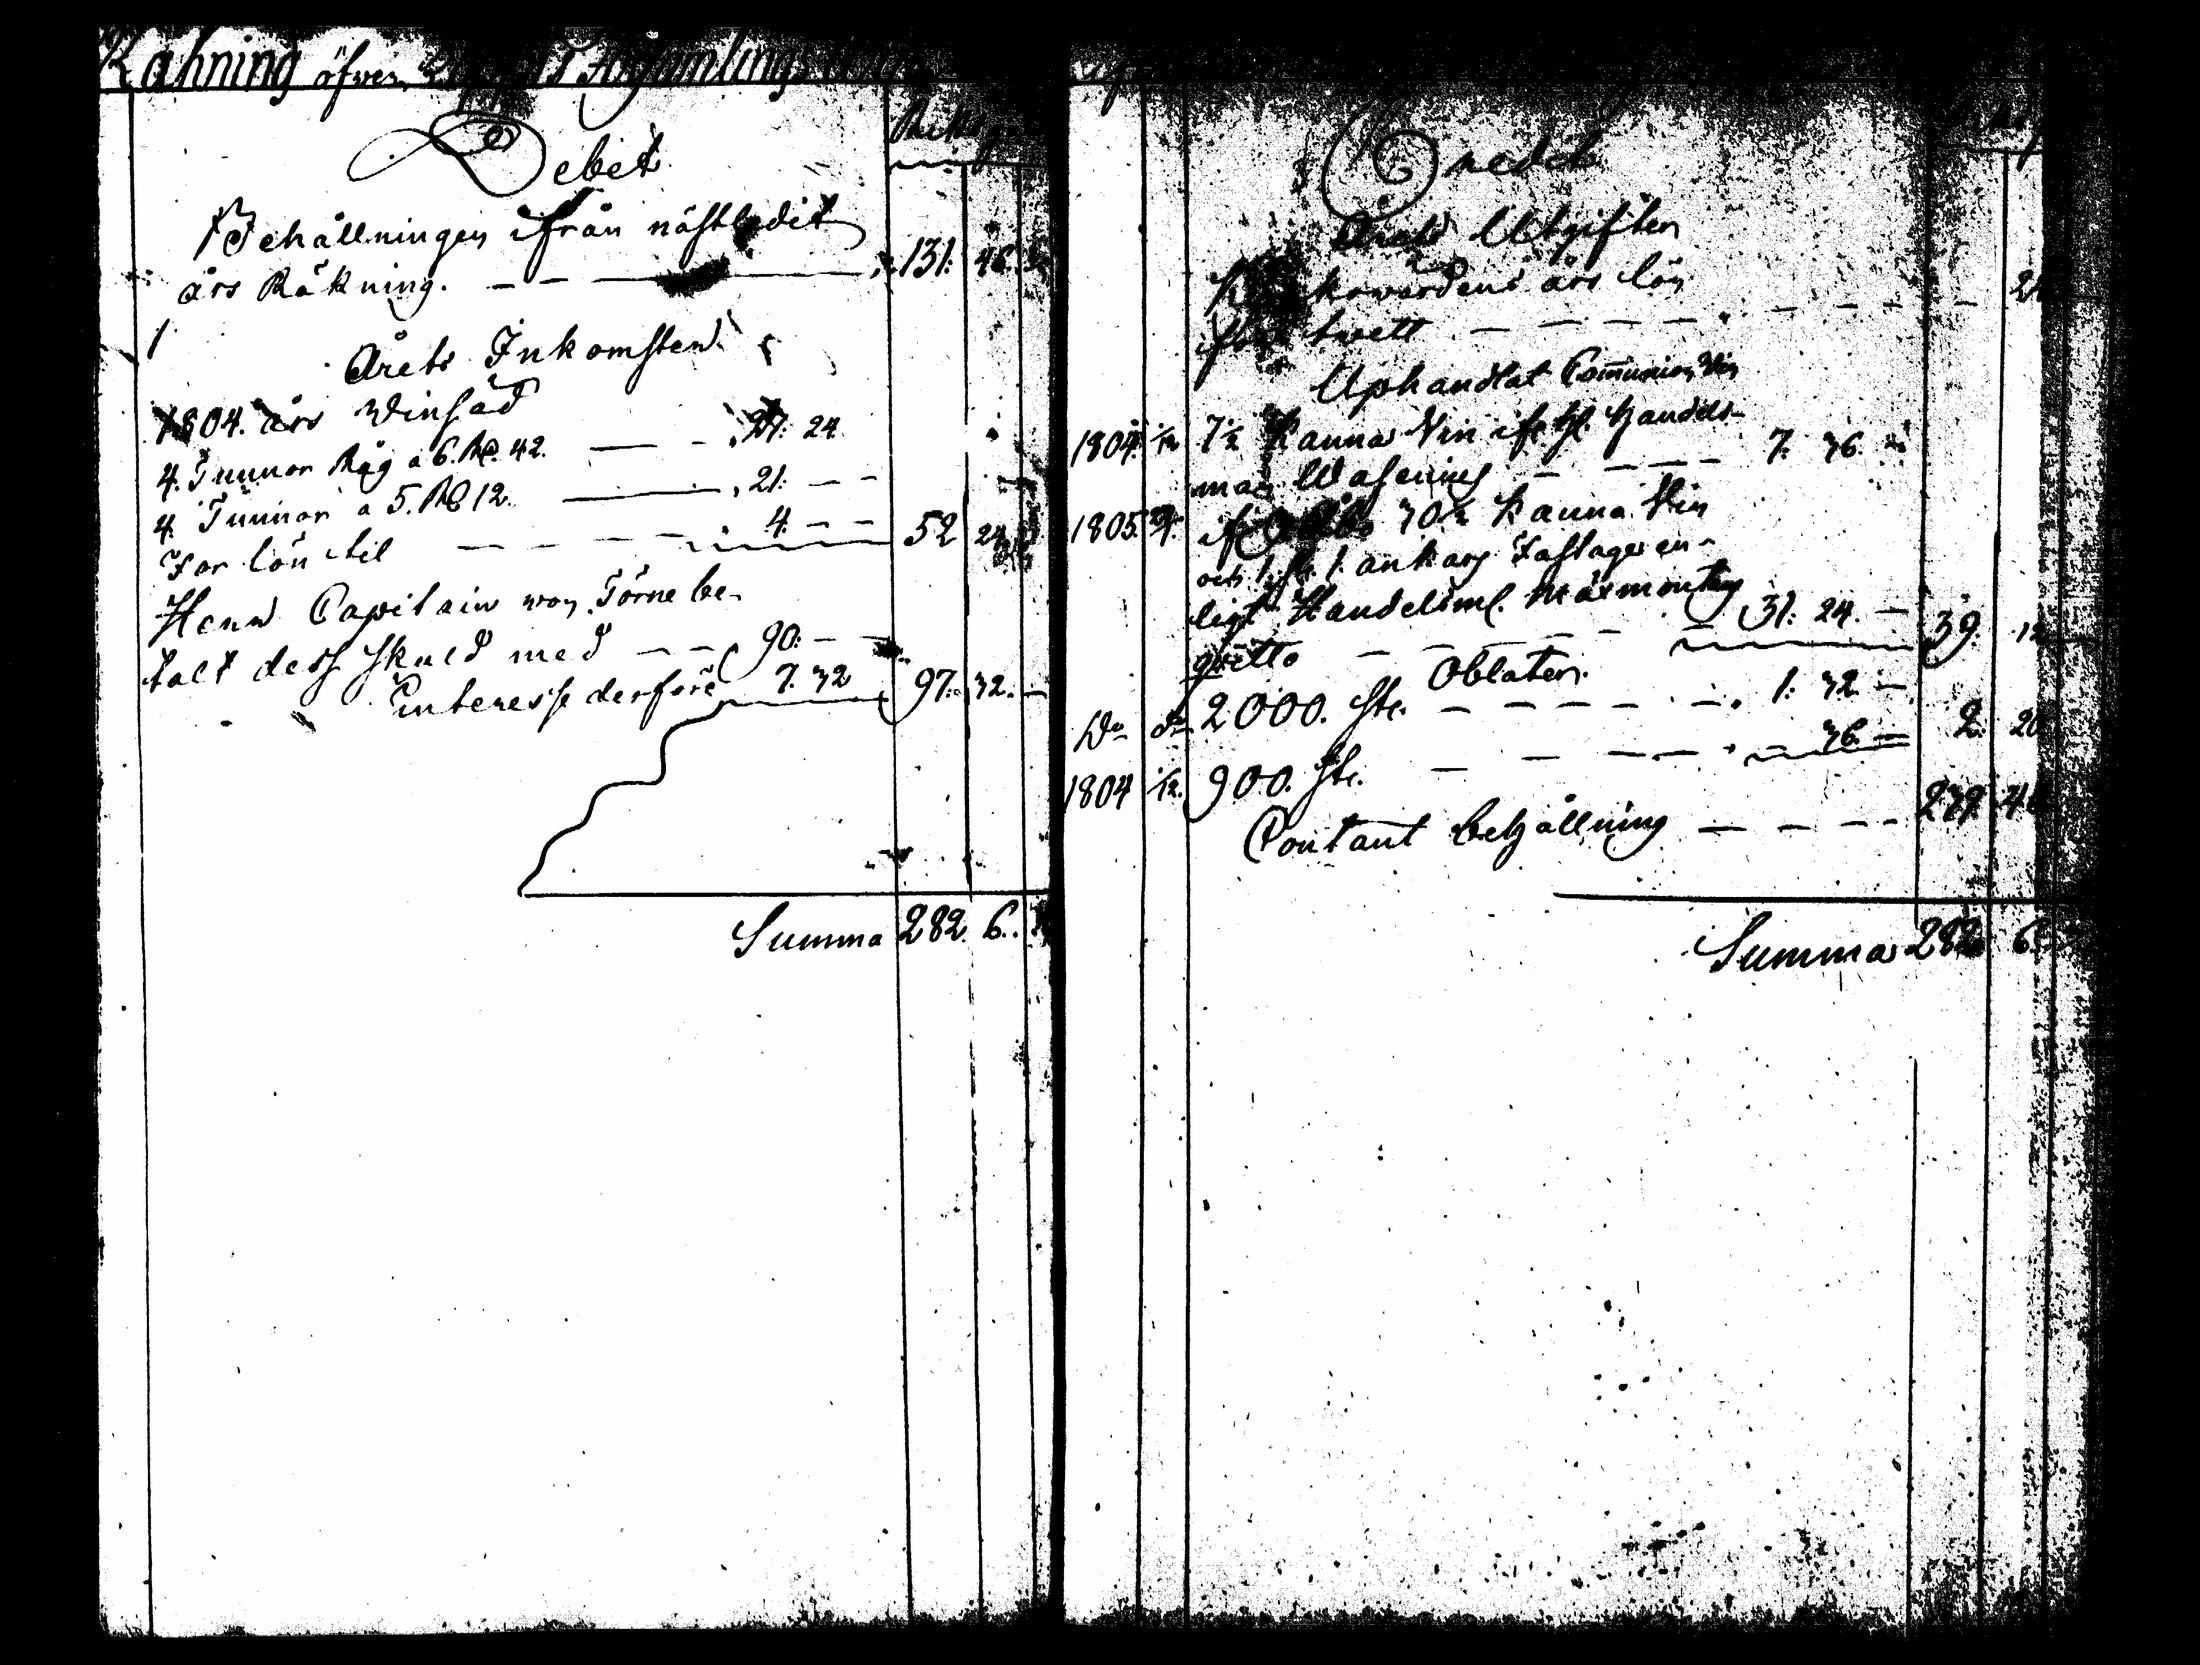 Räkning öfwer Församlings
Debet
Behållningen ifrån nästledit
års Räkning. — — — 131: 46.
Årets Inkomster
1804. års Winsäd
4. Tunnor Råg a 6. Rd. 42. — - 27: 24.
4. Tunnor a 5. Rd 12. — 21: — —
For lön til — — — — 4 — — 52 24
Herr Capitain von Törne be-
talt dess skuld med — — 90: — —
Interesse derföre 7. 32 97: 32. —
Summa 282. 6.
Credet
Årets Utgifter
Kyrkowärdens års lön
för twett — — — — — — — —
Uphandlat Communion Win
1804. 1/12 7 1/2 Kanna Vin if. H. Handels-
man — — — — 7. 36.
1805. if 30 1/2 Kanna Vin
och 1. st. 1. ankars Fastager en-
ligt Handelsm.
qvitto — — — — 31: 24. — 39: 12
Oblater.
Do do 2000. St. — — — — — 1: 32 —
1804 1/12. 900. St. — — — — — 36. — 2. 20
Contant behållning — — — — 239
Summa 282 6